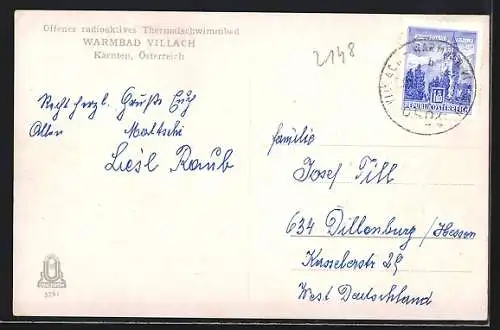 Offenes radioaktives Thermalschwimmbad
WARMBAD VILLACH
Kärnten, Österreich
2148
REPUBLIK ÖSTERREICH
Recht herzl. Grüße Euch
Allen
Liesl Raub
Familie
Josef Till
634 Dillenburg/Hessen
Kasselerstr 29
West Deutschland